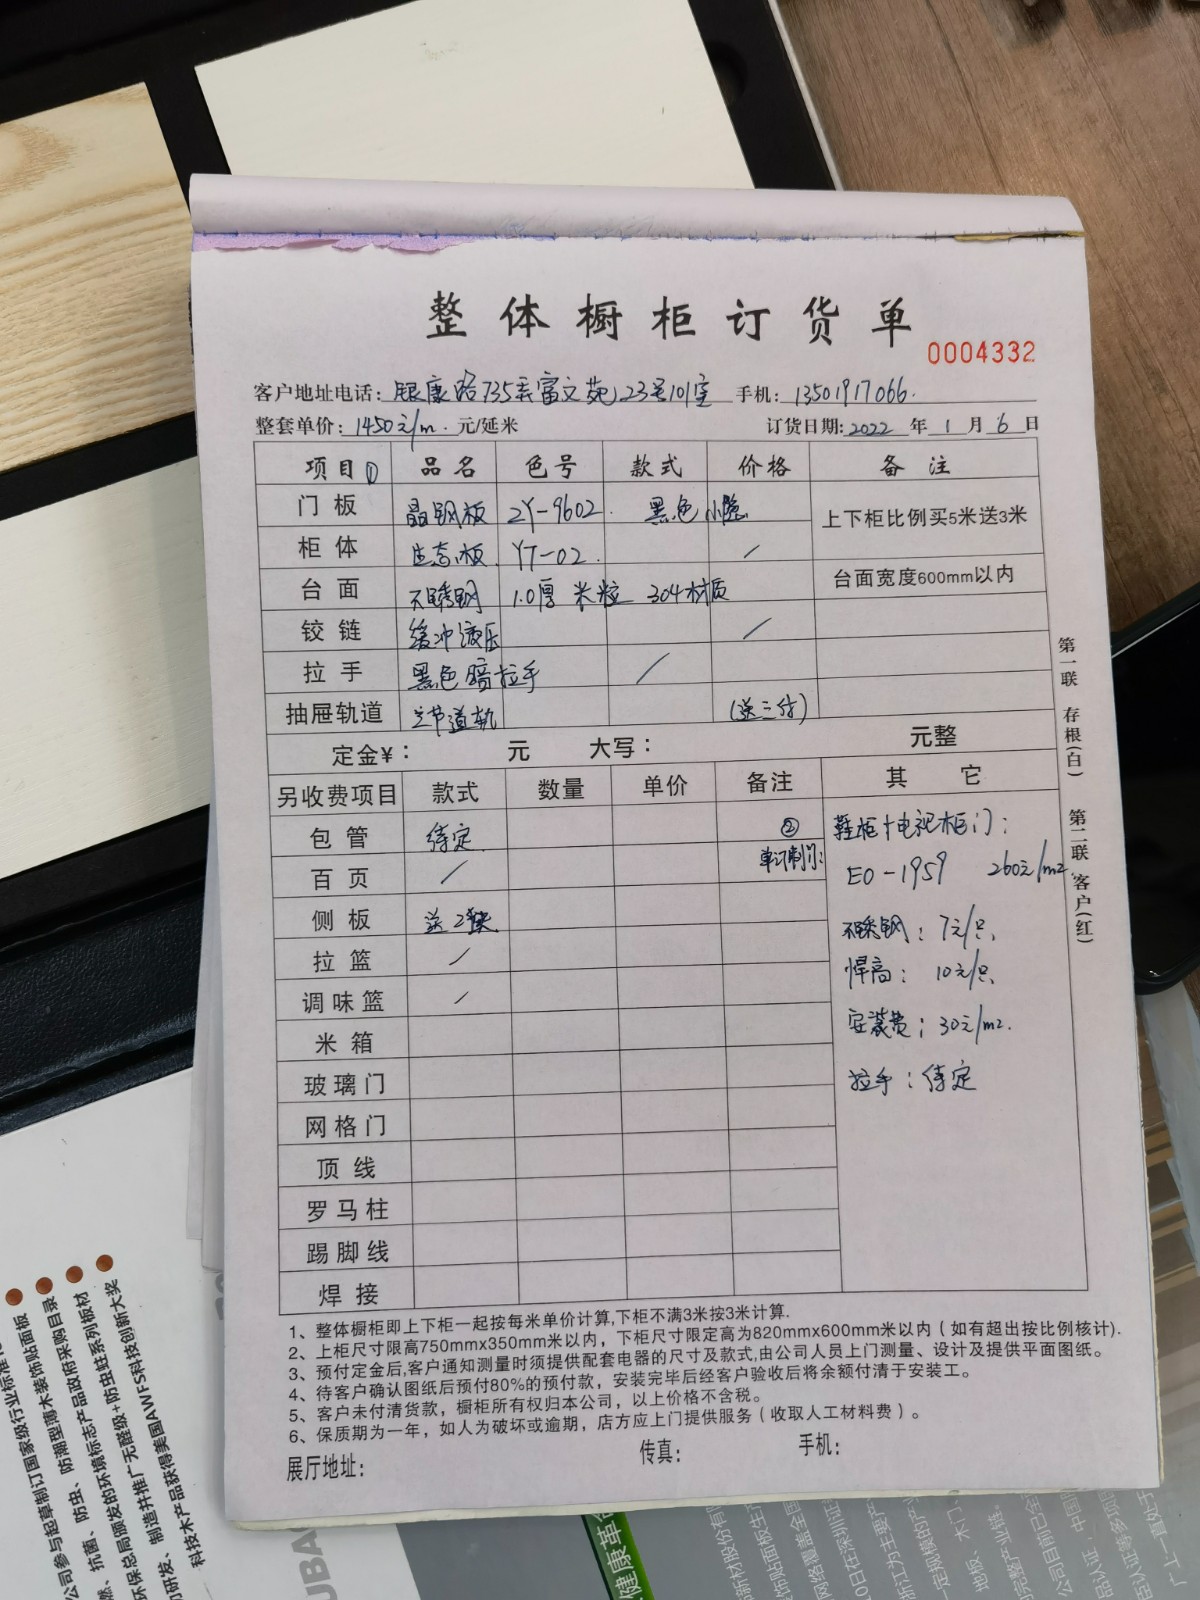 整体橱柜订货单
0004332
客户地址电话: 银康路735弄富文苑23号101室 手机: 13501917066.
整套单价: 1450元/m. 元/延米 订货日期: 2022 年 1 月 6 日
项目① 品名 色号 款式 价格 备注
门板 晶钢板 ZY-9602. 黑色小隐 上下柜比例买5米送3米
柜体 生态板 Y7-02. /
台面 不锈钢 1.0厚 米粒 304材质 台面宽度600mm以内
铰链 缓冲液压 /
拉手 黑色暗拉手 /
抽屉轨道 三节道轨 (送三付)
定金¥: 元 大写: 元整
另收费项目 款式 数量 单价 备注 其它
包管 待定 ② 鞋柜+电视柜门:
百页 / 单订制门: EO-1959 260元/m2
侧板 送2块 不锈钢: 7元/只、
拉篮 / 悍高: 10元/只、
调味篮 / 安装费; 30元/m2.
米箱
玻璃门 拉手: 待定
网格门
顶线
罗马柱
踢脚线
焊接
1、整体橱柜即上下柜一起按每米单价计算,下柜不满3米按3米计算.
2、上柜尺寸限高750mmx350mm米以内，下柜尺寸限定高为820mmx600mm米以内（如有超出按比例核计).
3、预付定金后,客户通知测量时须提供配套电器的尺寸及款式,由公司人员上门测量、设计及提供平面图纸。
4、待客户确认图纸后预付80%的预付款，安装完毕后经客户验收后将余额付清于安装工。
5、客户未付清货款，橱柜所有权归本公司，以上价格不含税。
6、保质期为一年，如人为破坏或逾期，店方应上门提供服务（收取人工材料费）。
展厅地址: 传真: 手机:
第一联 存根(白) 第二联 客户(红)
公司参与起草制订国家级行业标准
防潮型薄木装饰贴面板
燃、抗菌、防虫、
环保总局颁发的环境标志产品政府采购目录
制造并推广无醛级+防虫蛀系列板材
科技术产品获得美国AWFS科技创新大奖
UBA
健康革命